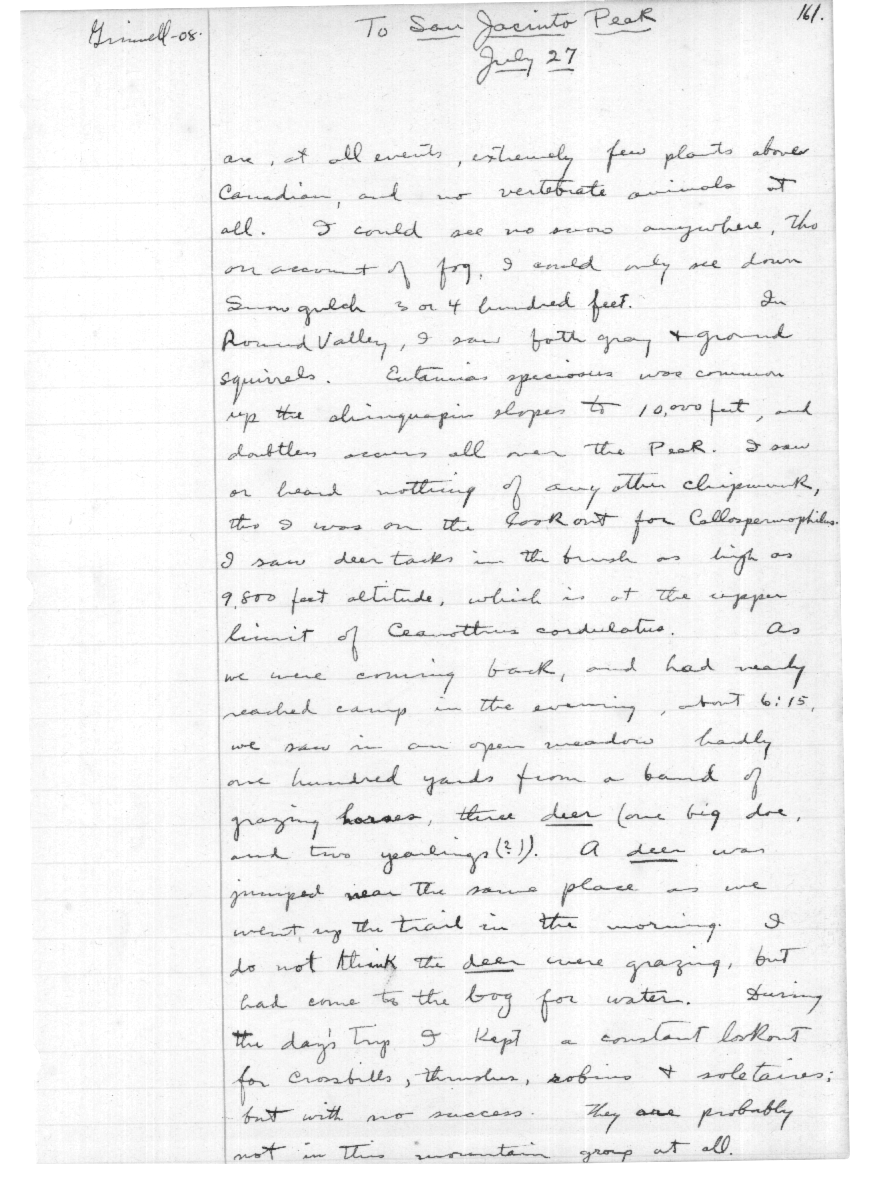 Grinnell-08.
To San Jacinto Peak
161.
July 27
are, at all events, extremely few plants above
Canadian, and no vertebrate animals at
all. I could see no snow anywhere, tho
on account of fog, I could only see down
Snow gulch 3 or 4 hundred feet. In
Round Valley, I saw both gray & ground
squirrels. Eutamias speciosus was common
up the chinquapin slopes to 10,000 feet, and
doubtless occurs all over the Peak. I saw
or heard nothing of any other chipmunk,
tho I was on the lookout for Callospermophilus.
I saw deer tacks in the brush as high as
9,800 feet altitude, which is at the upper
limit of Ceanothus cordulatus. As
we were coming back, and had nearly
reached camp in the evening, about 6:15,
we saw in an open meadow hardly
one hundred yards from a band of
grazing horses, three deer (one big doe,
and two yearlings(?)). A deer was
jumped near the same place as we
went up the trail in the morning. I
do not think the deer were grazing, but
had come to the bog for water. During
the day's trip I kept a constant lookout
for crossbills, thrushes, robins & soletaires;
but with no success. They are probably
not in this mountain group at all.